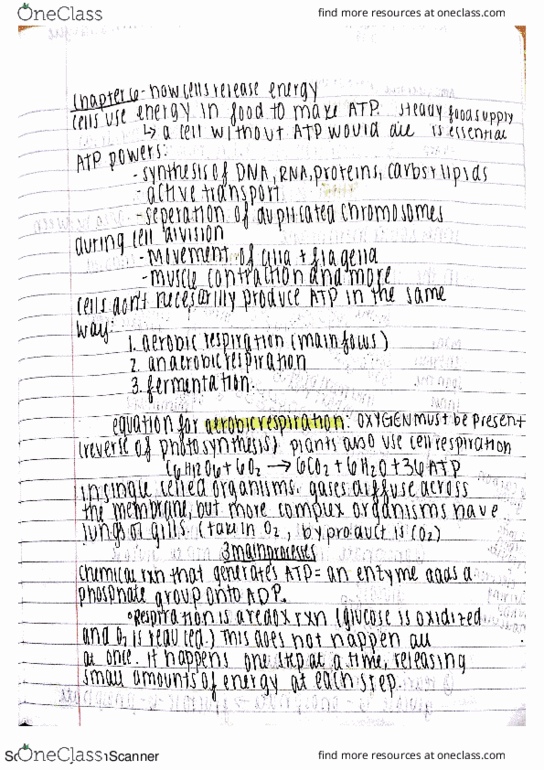 OneClass
find more resources at oneclass.com
Chapter 6- how cells release energy
cells use energy in food to make ATP. steady food supply
↳ a cell without ATP would die is essential
ATP powers:
- synthesis of DNA, RNA, proteins, carbs + lipids
- active transport
- seperation of duplicated chromosomes
during cell division
- Movement of cilia + flagella
- muscle contraction and more
cells don't necesarilly produce ATP in the same
way:
1. aerobic respiration (main focus)
2. anaerobic respiration
3. fermentation.
equation for aerobic respiration: OXYGEN must be present
(reverse of photosynthesis) plants also use cell respiration
C6H12O6 + 6O2 → 6CO2 + 6H2O + 36 ATP
in single celled organisms. gases diffuse across
the membrane, but more complex organisms have
lungs or gills (take in O2, byproduct is CO2)
3 main processes
Chemical rxn that generates ATP = an enzyme adds a
phosphate group onto ADP.
• Respiration is a redox rxn (glucose is oxidized
and O2 is reduced.) This does not happen all
at once. it happens one step at a time, releasing
small amounts of energy at each step.
OneClass
Scanner
find more resources at oneclass.com